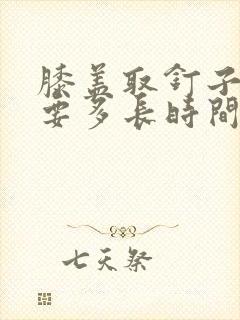 膝盖取钉子
要多長時間
七天祭